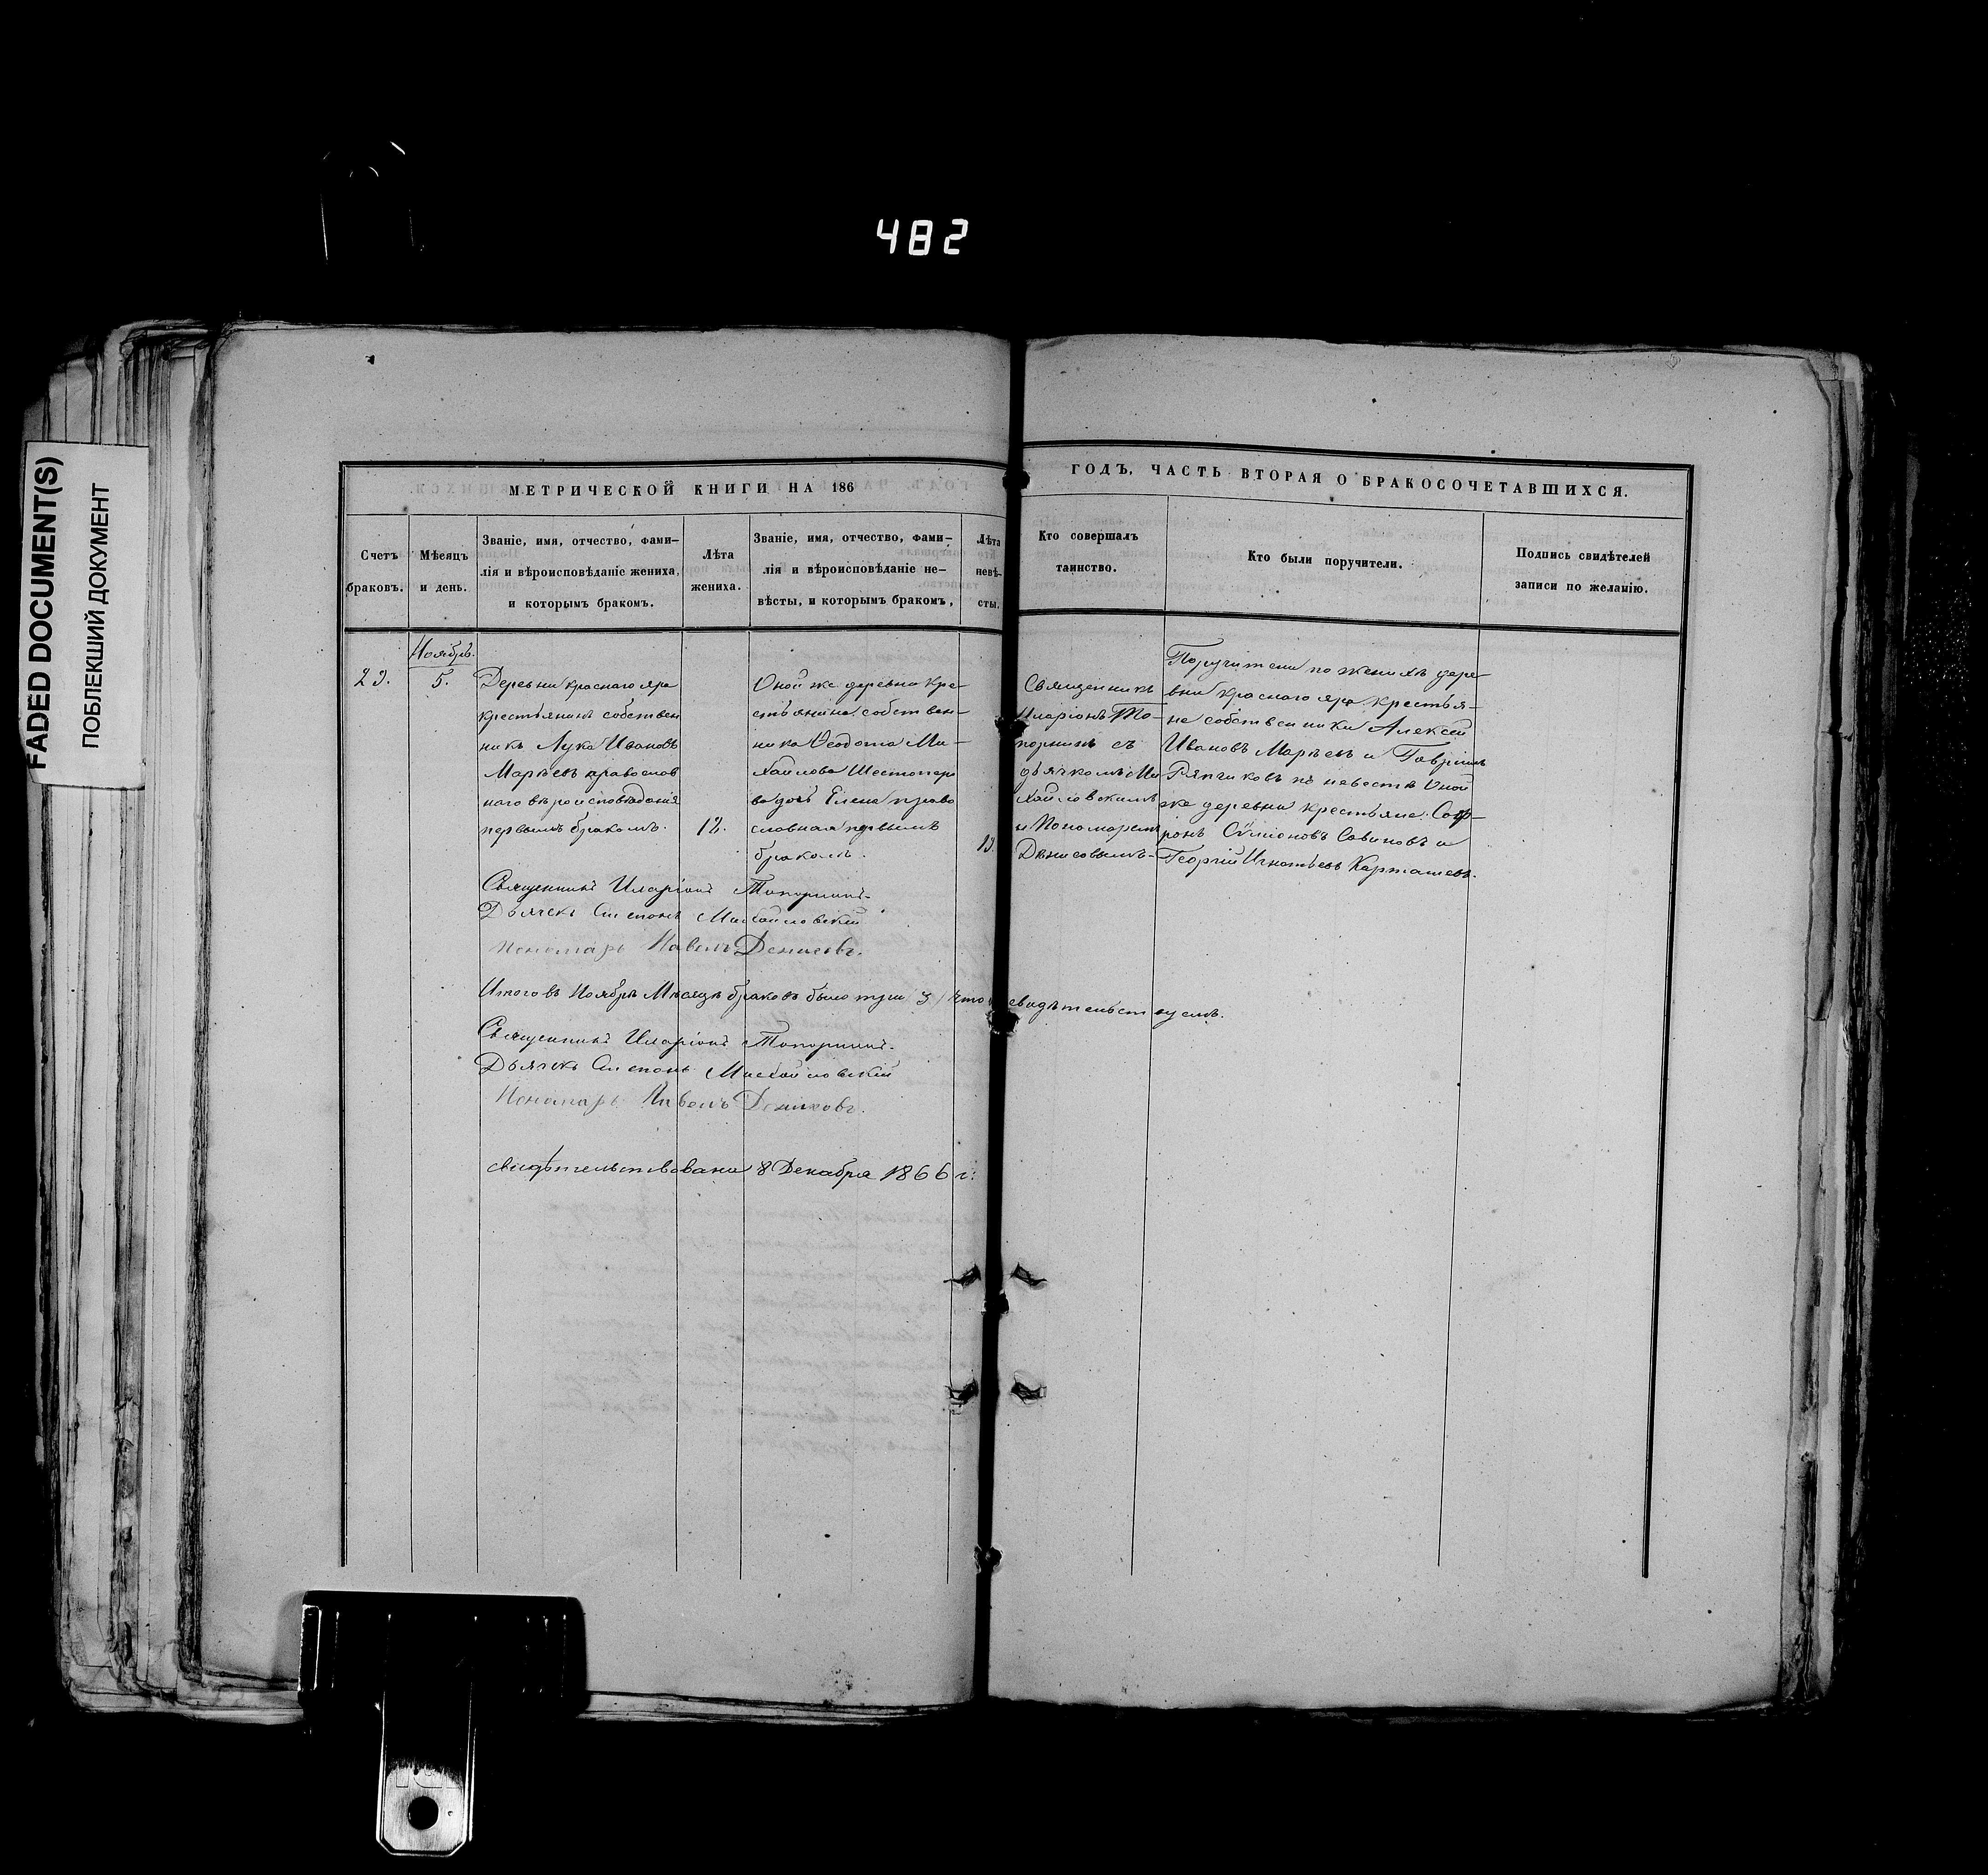 482
FADED DOCUMENT(S)
ПОБЛЕКШИЙ ДОКУМЕНТ
МЕТРИЧЕСКОЙ КНИГИ НА 186
ГОДЪ, ЧАСТЬ ВТОРАЯ О БРАКОСОЧЕТАВШИХСЯ.
Счетъ
браковъ.
Мѣсяцъ
и день.
Званіе, имя, отчество, фами–
лія и вѣроисповѣданіе жениха,
и которымъ бракомъ.
Лѣта
жениха.
Званіе, имя, отчество, фами–
лія и вѣроисповѣданіе не–
вѣсты, и которымъ бракомъ,
Лѣта
невѣ–
сты.
Кто совершалъ
таинство.
Кто были поручители.
Подпись свидѣтелей
записи по желанію.
Ноябрь.
5.
Деревни краснаго яра
крестьянинъ собствен
никъ Лука Ивановъ
православ
наго вѣроисповѣданія
первымъ бракомъ.
Оной же деревни кре–
стьянина собствен–
ника Ѳеодота Ми–
хайлова Шестопёро
ва дочь Елена право
славная первымъ
бракомъ.
Священникъ
Иларіонъ То–
порнинъ съ
дьячкомъ Ми
хайловскимъ
и Пономаремъ
Денисовымъ–
Поручители по женихѣ дере–
вни краснаго яра крестья–
не собственники Алексѣй
Ивановъ и Гавріилъ
Рящиковъ по невѣстѣ Оной
же деревни крестьяне: Соф–
ронъ Сѵмеоновъ Савиновъ и
Георгій Игнатьевъ Карташевъ.
Священникъ Иларіонъ Топорнинъ.
Дьячекъ Степанъ Михайловскій
Пономарь Павелъ Денисовъ.
Итого въ Ноябрѣ Мѣсяцѣ браковъ было три 3, что свидѣтельствуемъ.
Священникъ Иларіонъ Топорнинъ.
Дьячекъ Степанъ Михайловскій
Пономарь Павелъ Денисовъ.
свидѣтельствована 8 Декабря 1866 г.